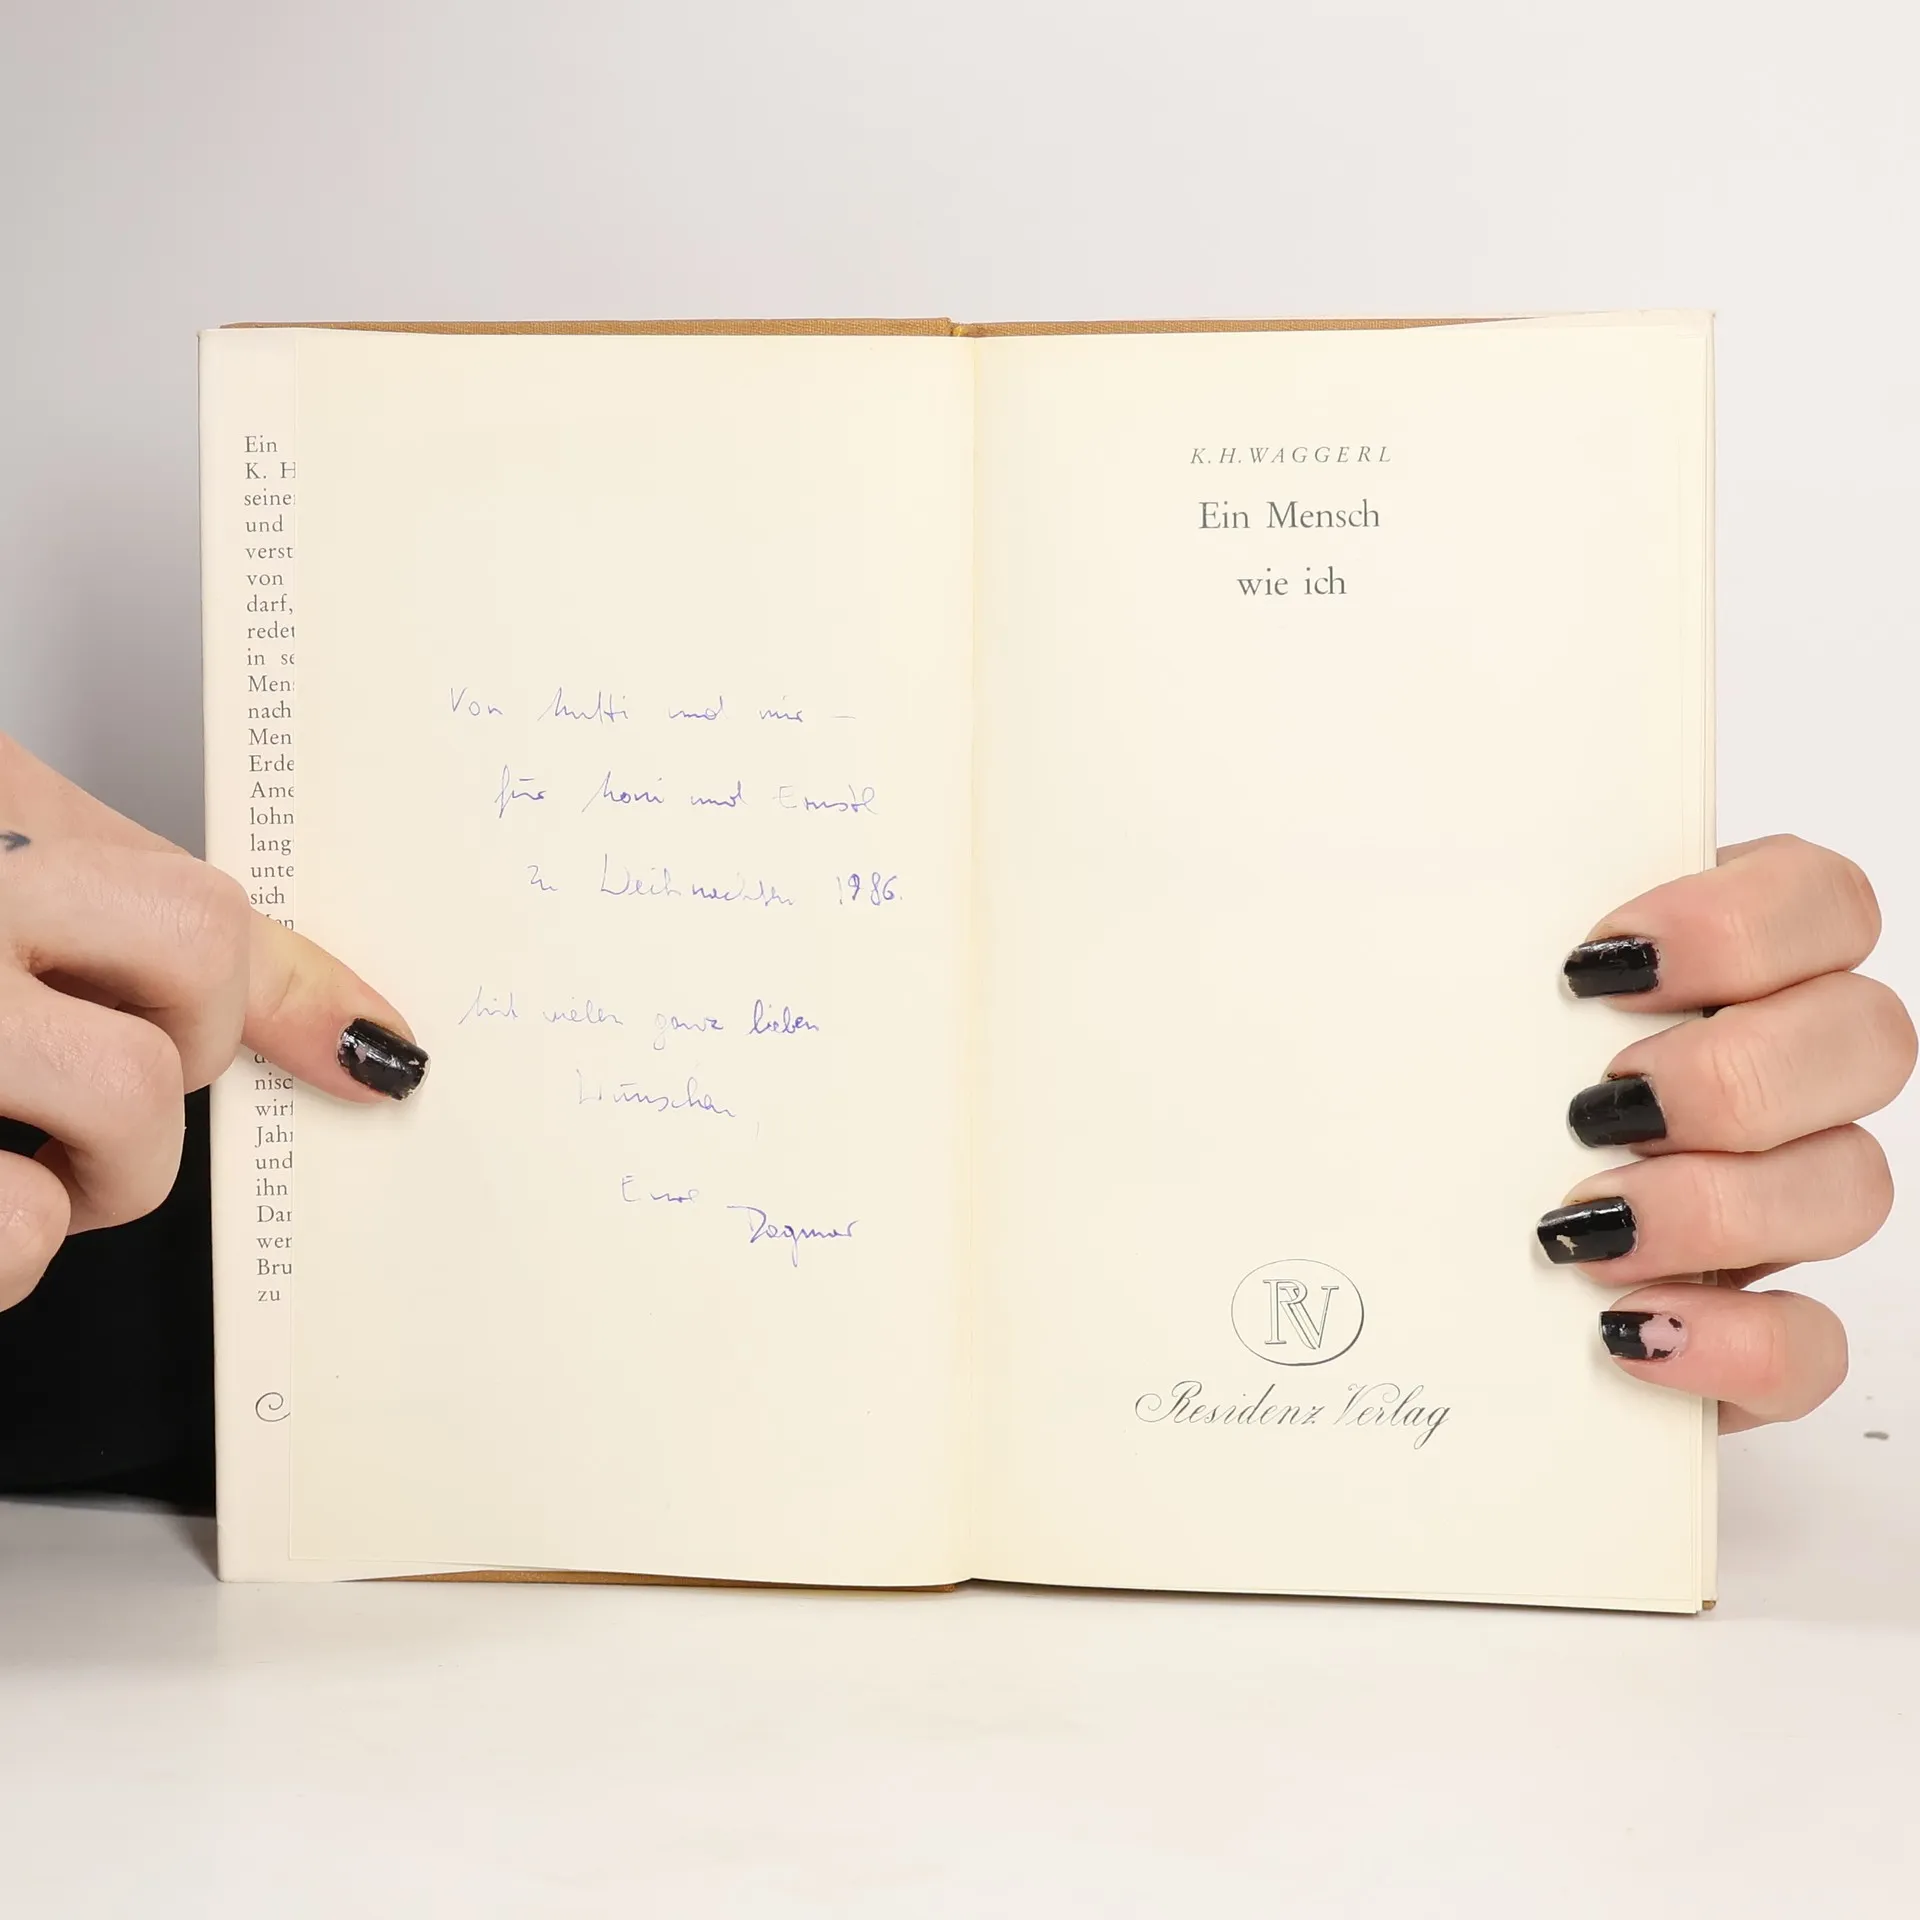 Ein
K. H
seine
und
verst
von
darf,
redet
in se
Men
nach
Men
Erde
Ame
lohn
lang
unte
sich
nisc
wirf
Jahr
und
ihn
Dar
wer
Bru
zu
Von Mutti und mir –
für Moni und Ernstl
zu Weihnachten 1986.
Mit vielen ganz lieben
Wünschen,
Eure
Dagmar
K. H. WAGGERL
Ein Mensch
wie ich
RV
Residenz Verlag